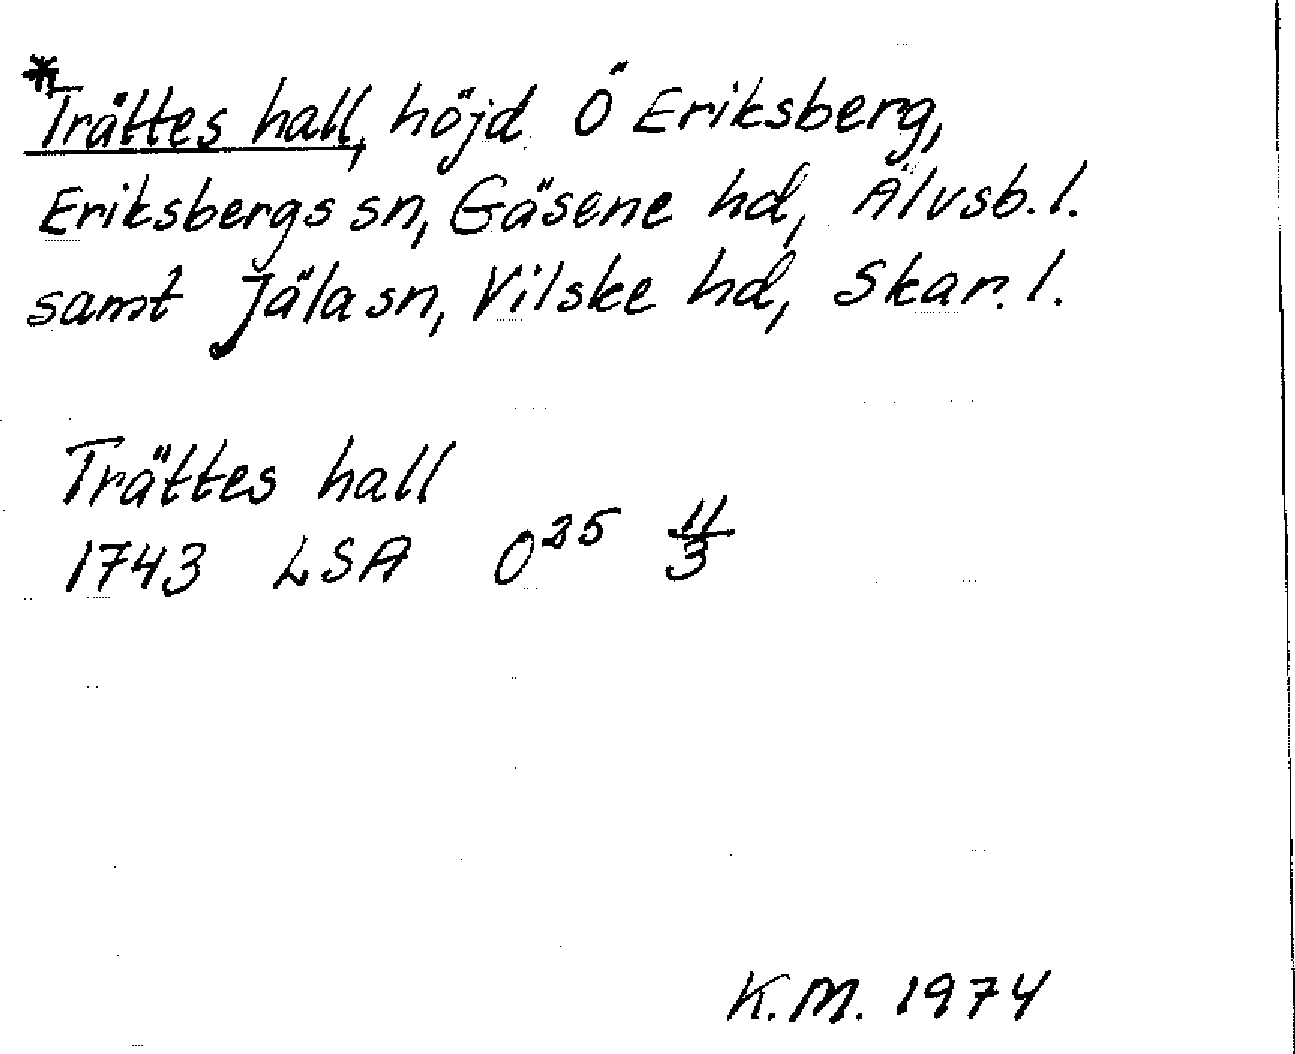 *Trättes hall, höjd Ö Eriksberg,
Eriksbergs sn, Gäsene hd, Älvsb. l.
samt Jäla sn, Vilske hd, Skar. l.
Trättes hall
1743 LSA O35 11/3
K.M. 1974